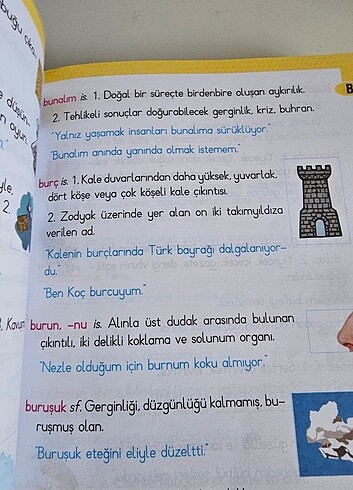 bunalım is. 1. Doğal bir süreçte birdenbire oluşan aykırılık.
2. Tehlikeli sonuçlar doğurabilecek gerginlik, kriz, buhran.
"Yalnız yaşamak insanları bunalıma sürüklüyor."
"Bunalım anında yanında olmak istemem."
burç is. 1. Kale duvarlarından daha yüksek, yuvarlak,
dört köşe veya çok köşeli kale çıkıntısı.
2. Zodyak üzerinde yer alan on iki takımyıldıza
verilen ad.
"Kalenin burçlarında Türk bayrağı dalgalanıyor-
du."
"Ben Koç burcuyum."
burun, -nu is. Alınla üst dudak arasında bulunan
çıkıntılı, iki delikli koklama ve solunum organı.
"Nezle olduğum için burnum koku almıyor."
buruşuk sf. Gerginliği, düzgünlüğü kalmamış, bu-
ruşmuş olan.
"Buruşuk eteğini eliyle düzeltti."